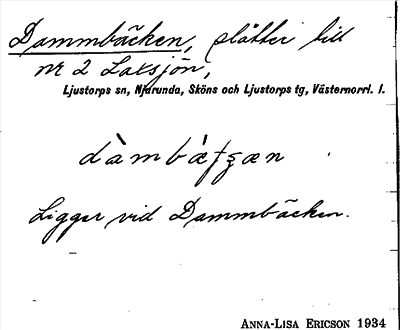 Dammbäcken, slåtter till
nr 2 Laxsjön,
Ljustorps sn, Njurunda, Sköns och Ljustorps tg, Västernorrl. l.
Ligger vid Dammbäcken.
ANNA-LISA ERICSON 1934